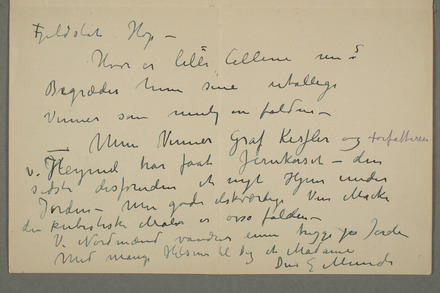 Fjeldslet Hop –
Hvor er lille nu?
Begræder hun sine utallige
Venner som nu er falden –
– Mine Venner Graf Kessler og forfatteren
v. Heymel har faat Jernkorset – den
sidste desforuden et nyt Hjem under
Jorden – Min gode elskværdige Ven Macke
den kubistiske Maler er osso falden –
Vi Nordmænd vandrer ennu trygge på Jorden
Med mange Hilsener til Dig og Madame
Din E Munch